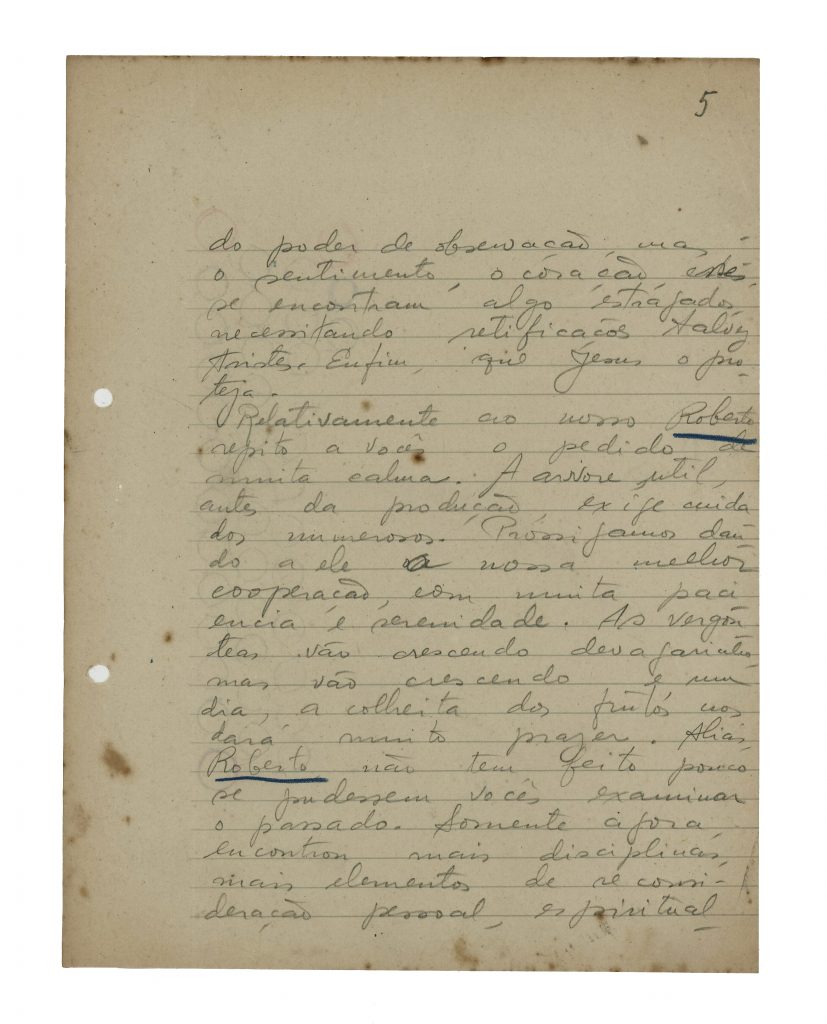 5
do poder de observação, mas
o sentimento, o coração, estes
se encontram algo estragados,
necessitando retificações talvez
tristes. Enfim, que Jesus o pro-
teja.
Relativamente ao nosso Roberto
repito a vocês o pedido de
muita calma. A arvore util,
antes da produção, exige cuida
dos numerosos. Prossigamos dan
do a ele a nossa melhor
cooperação, com muita paci
encia e serenidade. As vergôn
teas vão crescendo devagarinho,
mas vão crescendo e um
dia, a colheita dos frutos nos
dará muito prazer. Aliás
Roberto não tem feito pouco
se pudessem vocês examinar
o passado. Somente agora,
encontrou mais disciplinas,
mais elementos de reconsi-
deração pessoal, espiritual